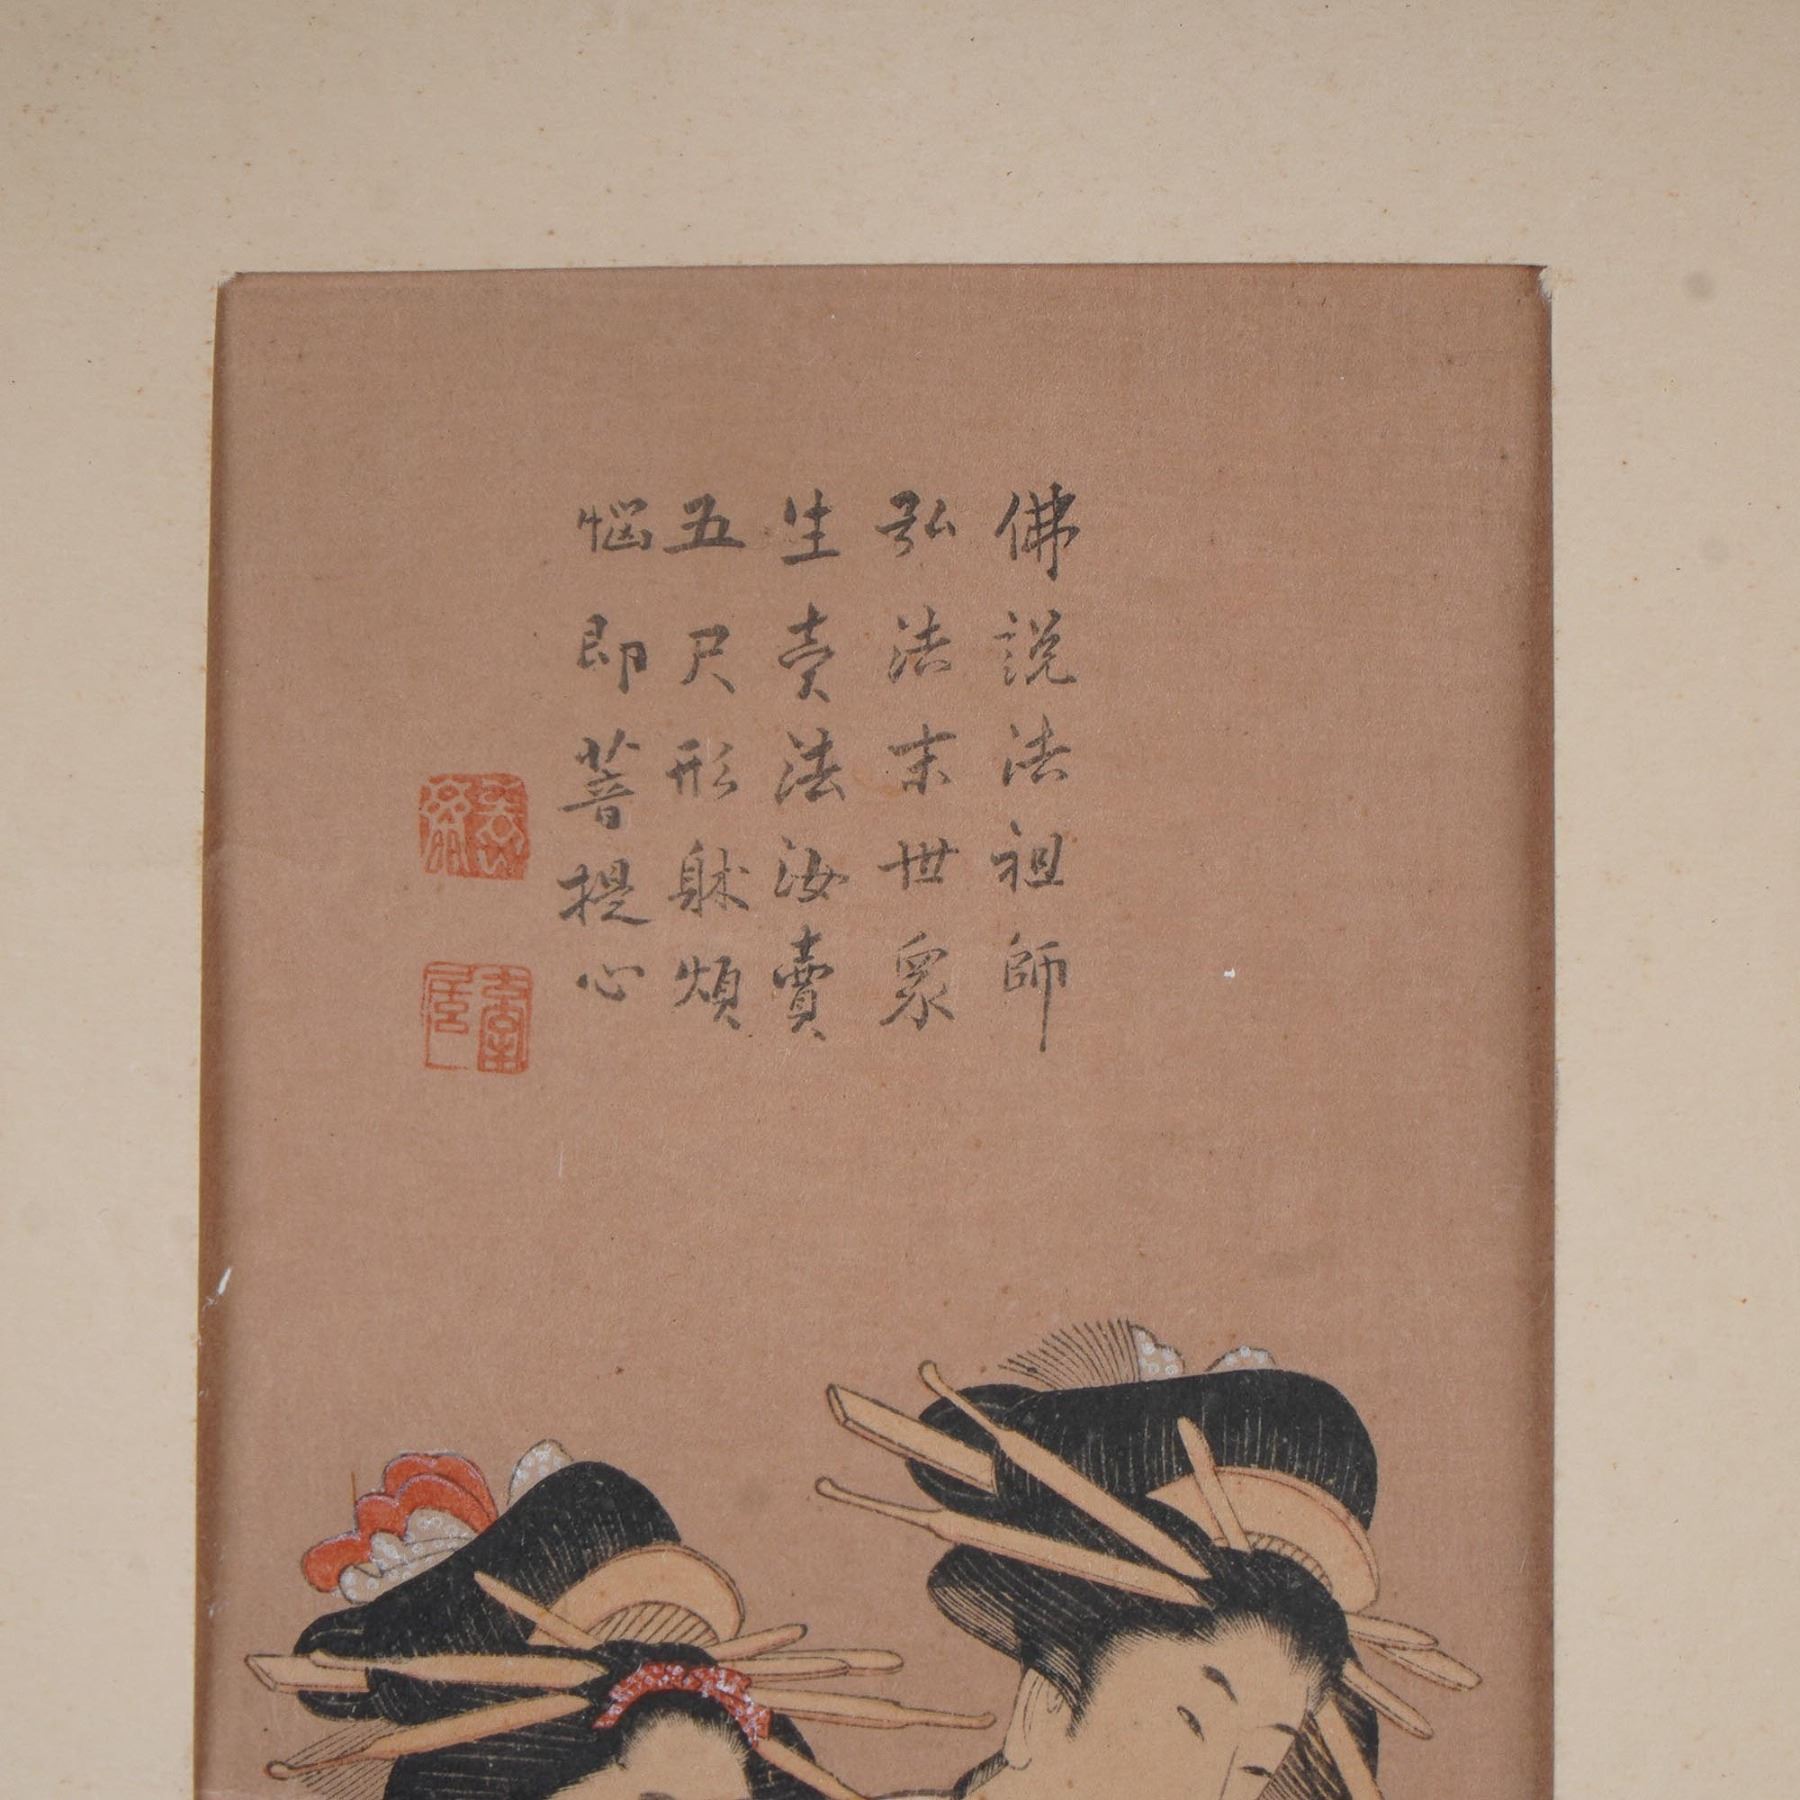 佛説法祖師
弘法末世衆
生賣法汝賣
五尺形躰煩
惱即菩提心